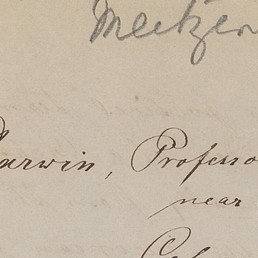 Meitzen
Darwin, Professo
near